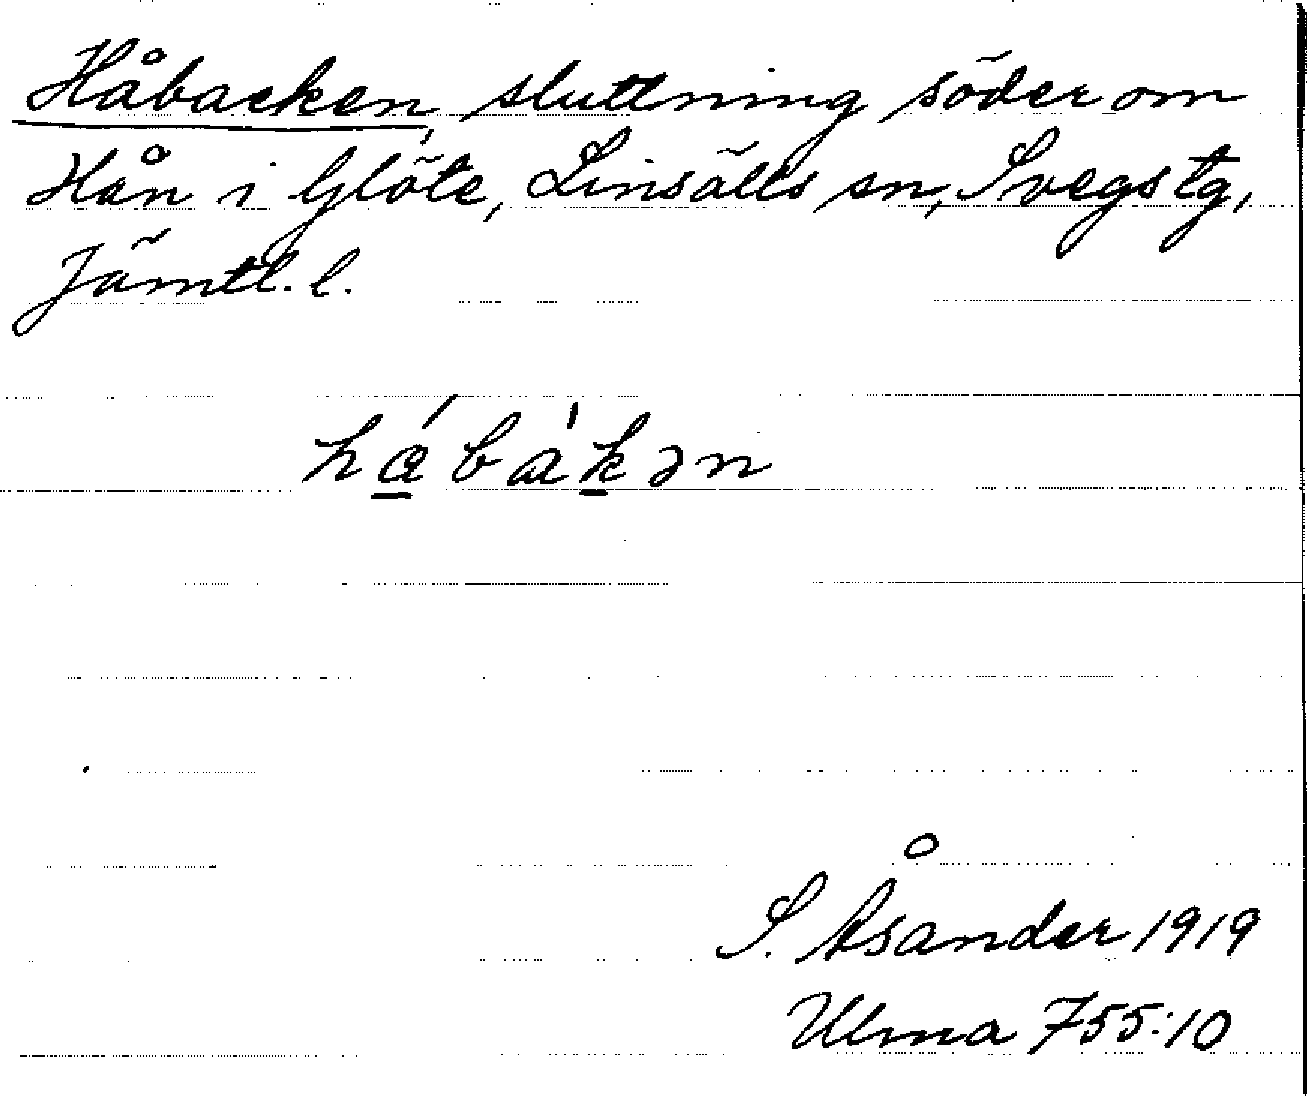 Håbacken, sluttning söder om
Hån i Glöte, Linsälls sn, Svegs tg,
Jämtl. l.
hábàkən
S. Åsander 1919
Ulma 755:10